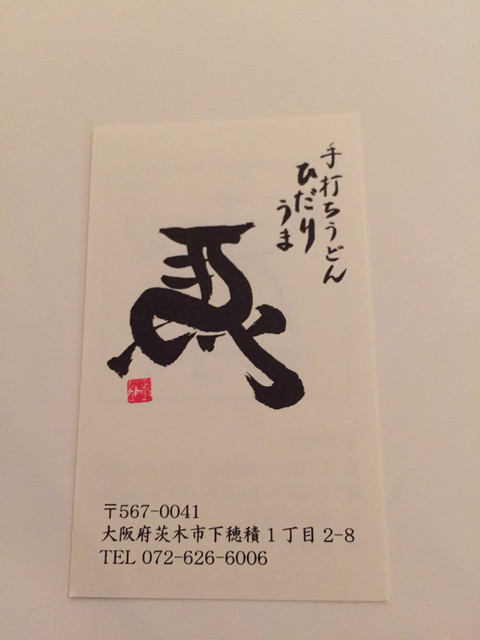 手打ちうどん
ひだり
うま
馬
〒567-0041
大阪府茨木市下穂積1丁目2-8
TEL 072-626-6006